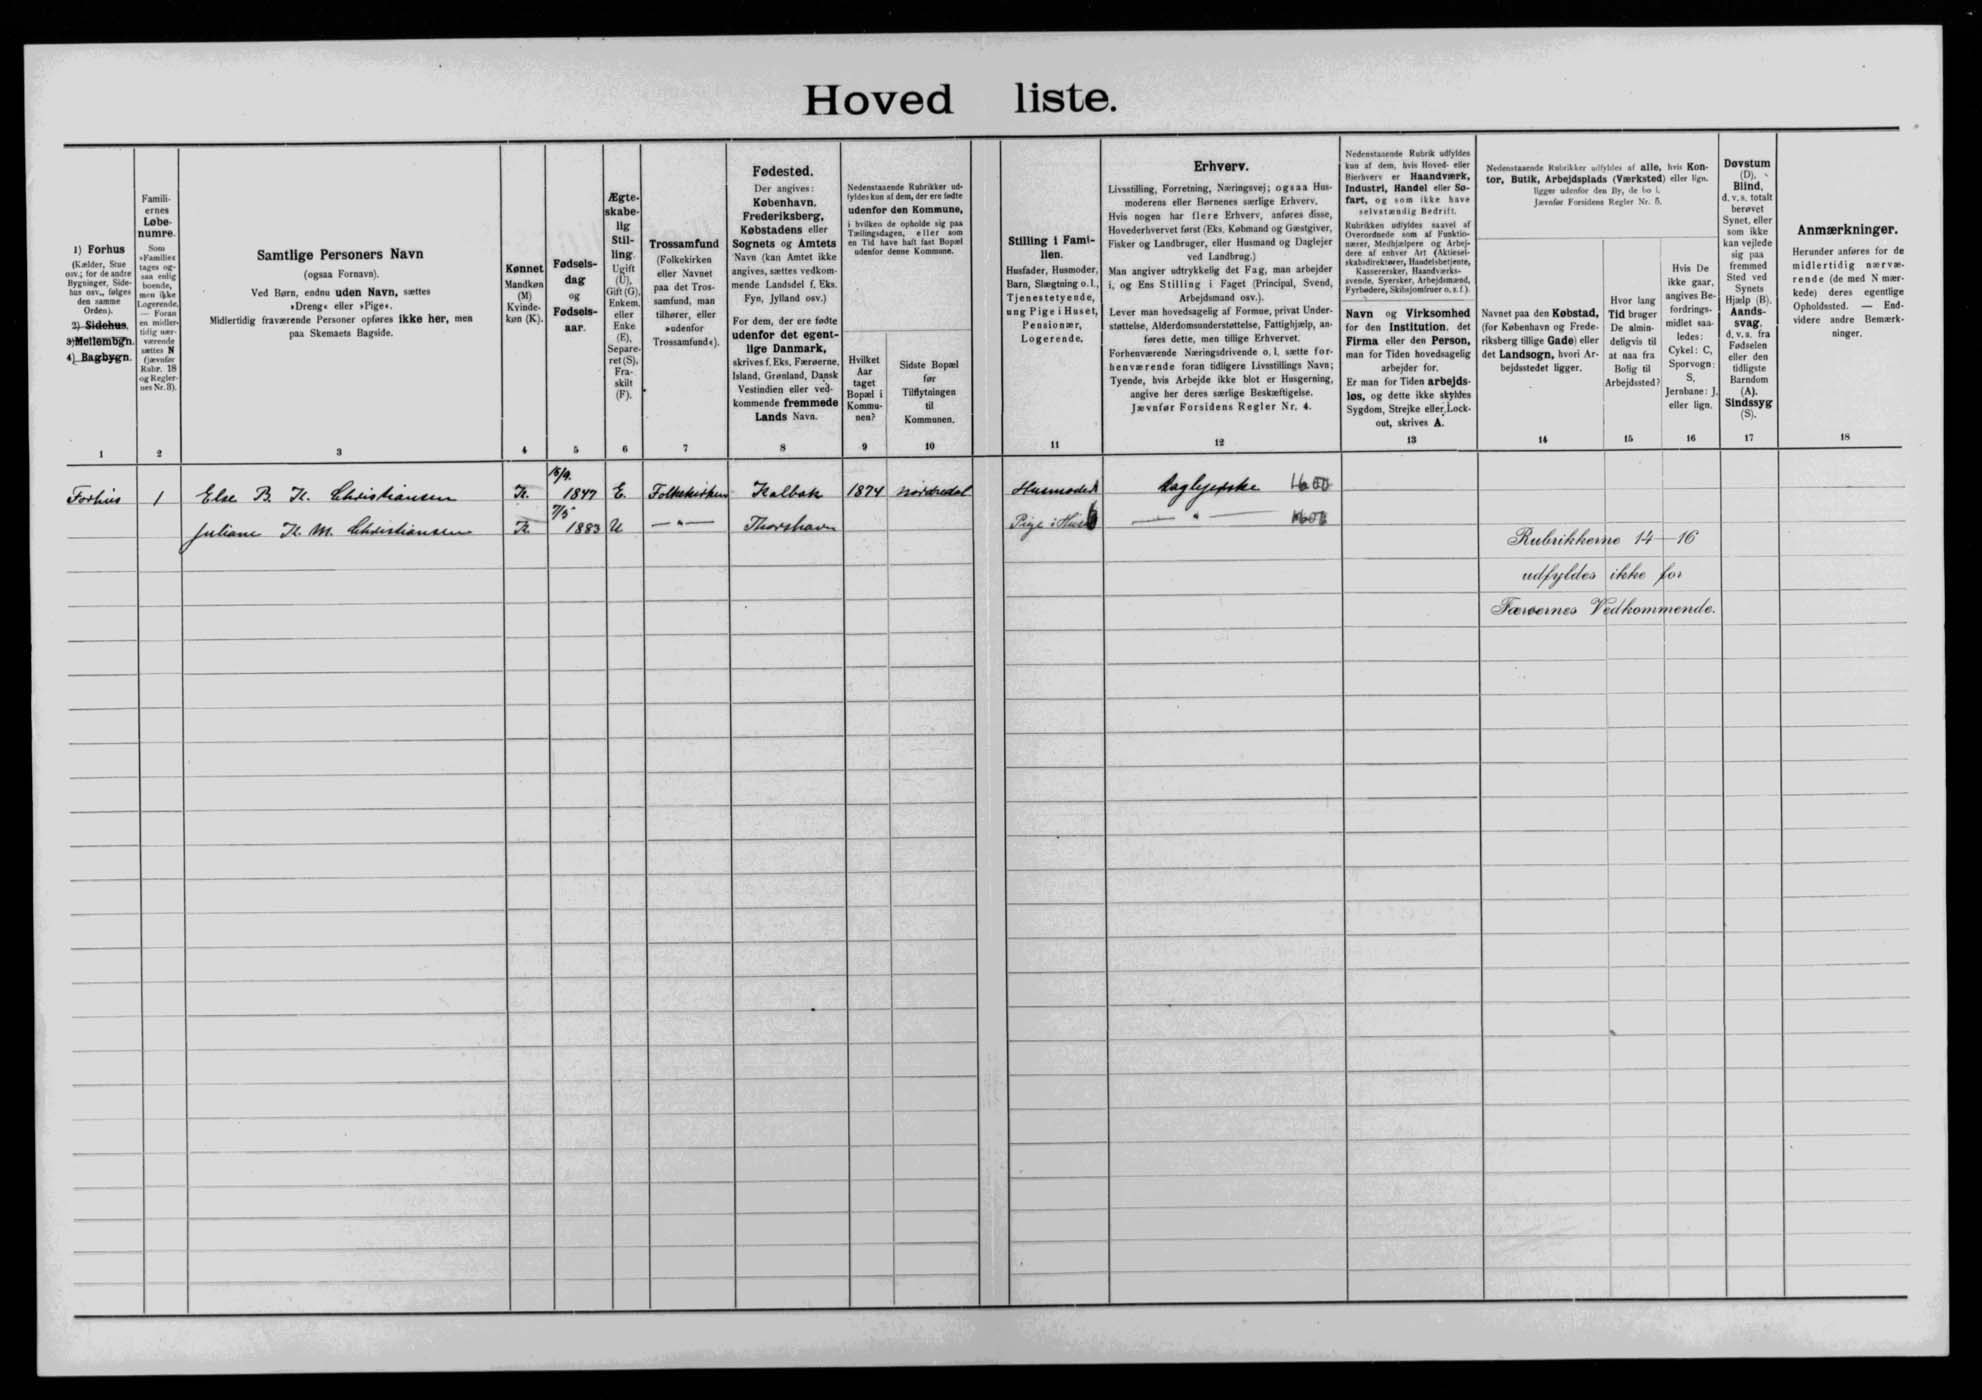 Hoved liste.
1) Forhus
(Kælder, Stue
osv.; for de andre
Bygninger, Side-
hus osv., følges
den samme
Orden).
2) Sidehus.
3) Mellembgn.
4) Bagbygn.
1
Famili-
ernes
Løbe-
numre.
Som
»Familie«
tages og-
saa enlig
boende,
men ikke
Logerende.
— Foran
en midler-
tidig nær-
værende
sættes N
(jævnfør
Rubr. 18
og Regler-
nes Nr. 3).
2
Samtlige Personers Navn
(ogsaa Fornavn).
Ved Børn, endnu uden Navn, sættes
»Dreng« eller »Pige«.
Midlertidig fraværende Personer opføres ikke her, men
paa Skemaets Bagside.
3
Kønnet
Mandkøn
(M)
Kvinde-
køn (K).
4
Fødsels-
dag
og
Fødsels-
aar.
5
Ægte-
skabe-
lig
Stil-
ling.
Ugift
(U),
Gift (G),
Enkem.
eller
Enke
(E),
Separe-
ret (S),
Fra-
skilt
(F).
6
Trossamfund
(Folkekirken
eller Navnet
paa det Tros-
samfund, man
tilhører, eller
»udenfor
Trossamfund«).
7
Fødested.
Der angives:
København,
Frederiksberg,
Købstadens eller
Sognets og Amtets
Navn (kan Amtet ikke
angives, sættes vedkom-
mende Landsdel f. Eks.
Fyn, Jylland osv.)
For dem, der ere fødte
udenfor det egent-
lige Danmark,
skrives f. Eks. Færøerne,
Island, Grønland, Dansk
Vestindien eller ved-
kommende fremmede
Lands Navn.
8
Nedenstaaende Rubrikker ud-
fyldes kun af dem, der ere fødte
udenfor den Kommune,
i hvilken de opholde sig paa
Tællingsdagen, eller som
en Tid have haft fast Bopæl
udenfor denne Kommune.
Hvilket
Aar
taget
Bopæl i
Kommu-
nen?
9
Sidste Bopæl
før
Tilflytningen
til
Kommunen.
10
Stilling i Fami-
lien.
Husfader, Husmoder,
Barn, Slægtning o. l.,
Tjenestetyende,
ung Pige i Huset,
Pensionær,
Logerende.
11
Erhverv.
Livsstilling, Forretning, Næringsvej; ogsaa Hus-
moderens eller Børnenes særlige Erhverv.
Hvis nogen har flere Erhverv, anføres disse,
Hovederhvervet først (Eks. Købmand og Gæstgiver,
Fisker og Landbruger, eller Husmand og Daglejer
ved Landbrug.)
Man angiver udtrykkelig det Fag, man arbejder
i, og Ens Stilling i Faget (Principal, Svend,
Arbejdsmand osv.).
Lever man hovedsagelig af Formue, privat Under-
støttelse, Alderdomsunderstøttelse, Fattighjælp, an-
føres dette, men tillige Erhvervet.
Forhenværende Næringsdrivende o. l. sætte for-
henværende foran tidligere Livsstillings Navn;
Tyende, hvis Arbejde ikke blot er Husgerning,
angive her deres særlige Beskæftigelse.
Jævnfør Forsidens Regler Nr. 4.
12
Nedenstaaende Rubrik udfyldes
kun af dem, hvis Hoved- eller
Bierhverv er Haandværk,
Industri, Handel eller Sø-
fart, og som ikke have
selvstændig Bedrift.
Rubrikken udfyldes saavel af
Overordnede som af Funktio-
nærer, Medhjælpere og Arbej-
dere af enhver Art (Aktiesel-
skabsdirektører, Handelsbetjente,
Kasserersker, Haandværks-
svende, Syersker, Arbejdsmænd,
Fyrbødere, Skibsjomfruer o. s. f.).
Navn og Virksomhed
for den Institution, det
Firma eller den Person,
man for Tiden hovedsagelig
arbejder for.
Er man for Tiden arbejds-
løs, og dette ikke skyldes
Sygdom, Strejke eller Lock-
out, skrives A.
13
Nedenstaaende Rubrikker udfyldes af alle, hvis Kon-
tor, Butik, Arbejdsplads (Værksted) eller lign.
ligger udenfor den By, de bo i.
Jævnfør Forsidens Regler Nr. 5.
Navnet paa den Købstad,
(for København og Frede-
riksberg tillige Gade) eller
det Landsogn, hvori Ar-
bejdsstedet ligger.
14
Hvor lang
Tid bruger
De almin-
deligvis til
at naa fra
Bolig til
Arbejdssted?
15
Hvis De
ikke gaar,
angives Be-
fordrings-
midlet saa-
ledes:
Cykel: C,
Sporvogn:
S,
Jernbane: J,
eller lign.
16
Døvstum
(D).
Blind,
d. v. s. totalt
berøvet
Synet, eller
som ikke
kan vejlede
sig paa
fremmed
Sted ved
Synets
Hjælp (B).
Aands-
svag,
d. v. s. fra
Fødselen
eller den
tidligste
Barndom
(A).
Sindssyg
(S).
17
Anmærkninger.
Herunder anføres for de
midlertidig nærvæ-
rende (de med N mær-
kede) deres egentlige
Opholdssted. — End-
videre andre Bemærk-
ninger.
18
Forhus 1 Else B. K. Christiansen K. 15/9. 1847 E. Folkekirken Kalbak 1874 Nordredal Husmoder Daglejerske
Juliane K. M. Christiansen K. 7/5 1883 U —"— Thorshavn Pige i Huset —"—
Rubrikkerne 14—16
udfyldes ikke for
Færøernes Vedkommende.